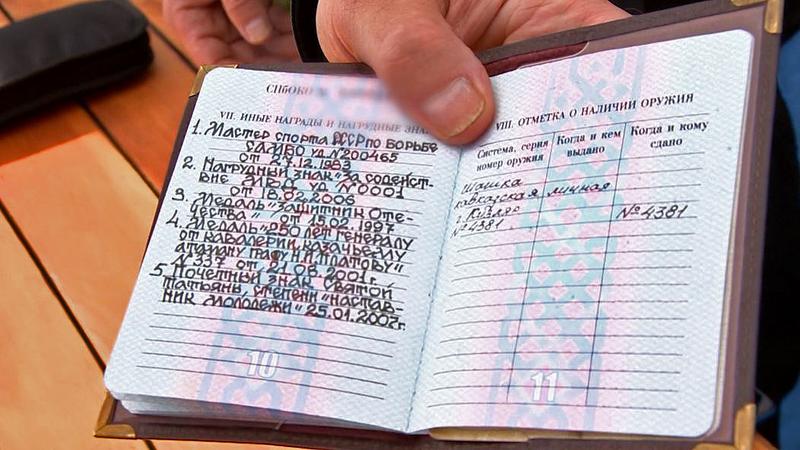 VII. ИНЫЕ НАГРАДЫ И НАГРУДНЫЕ ЗНА
1. Мастер спорта СССР по борьбе
САМБО уд №200465
от 27.12.1983
2. Нагрудный знак "За содейст-
вие МВД" уд №0001
от 18.02.2006
3. Медаль "Защитник Оте-
чества" от 13.02.1997
4. Медаль "250 лет генералу
от кавалерии, казачьему
атаману
№337 от 21.08.2001г.
5. Почетный знак Святой
Татьяны, степени "настав-
ник молодежи" 25.01.2007г.
10
VIII. ОТМЕТКА О НАЛИЧИИ ОРУЖИЯ
Система, серия номер оружия
Когда и кем выдано
Когда и кому сдано
Шашка
кавказская личная
г. Кизляр
№4381
№4381
11